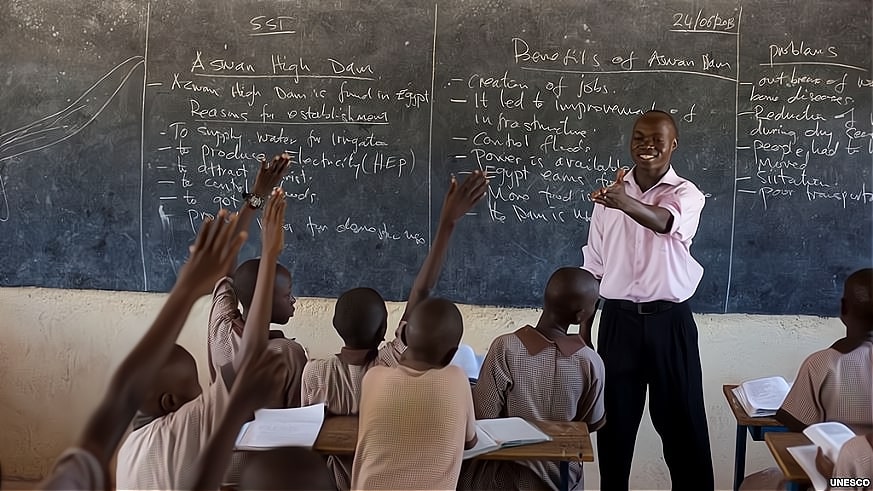 SST
24/06/2013
Aswan High Dam
Aswan High Dam is found in Egypt
Reasons for establishment
- To supply water for irrigation
- to produce Electricity (HEP)
- to attract
- to
- to
water for domestic use
Benefits of Aswan Dam
- Creation of jobs.
- It led to improvement of
infrastructure.
- Control floods
- Power is available
- Egypt earns
- More food is
- the Dam is
problems
- out break of
bone diseases.
- Reduction of
during dry
- people had to
moved
- Siltation
- poor transport
UNESCO